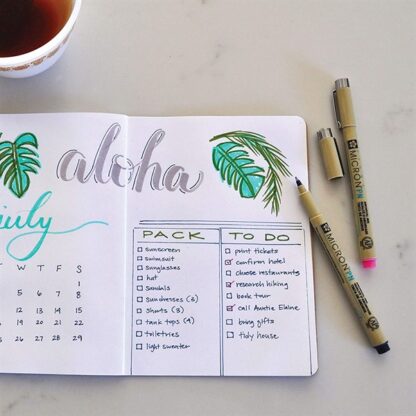 aloha
july
W T F S
1
5 6 7 8
12 13 14 15
19 20 21 22
26 27 28 29
PACK
sunscreen
swimsuit
sunglasses
hat
sandals
sundresses (3)
shorts (3)
tank tops (4)
toiletries
light sweater
TO DO
print tickets
confirm hotel
choose restaurants
research hiking
book tour
call Auntie Elaine
bring gifts
tidy house
MICRON PN
MICRON PN